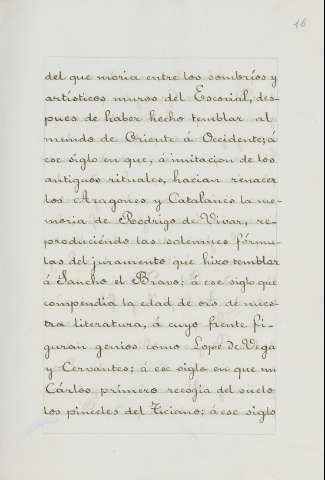 16
del que moria entre los sombríos y
artísticos muros del Escorial, des-
pues de haber hecho temblar al
mundo de Oriente á Occidente; á
ese siglo en que, á imitacion de los
antiguos rituales, hacian renacer
los Aragones y Catalanes la me-
moria de Rodrigo de Vivar, re-
produciéndo las solemnes fórmu-
las del juramento que hizo temblar
á Sancho el Bravo: á ese siglo que
compendia la edad de oro de nues-
tra literatura, á cuyo frente fi-
guran genios como Lope de Vega
y Cervantes; á ese siglo en que un
Cárlos primero recogia del suelo
los pinceles del Ticiano; á ese siglo